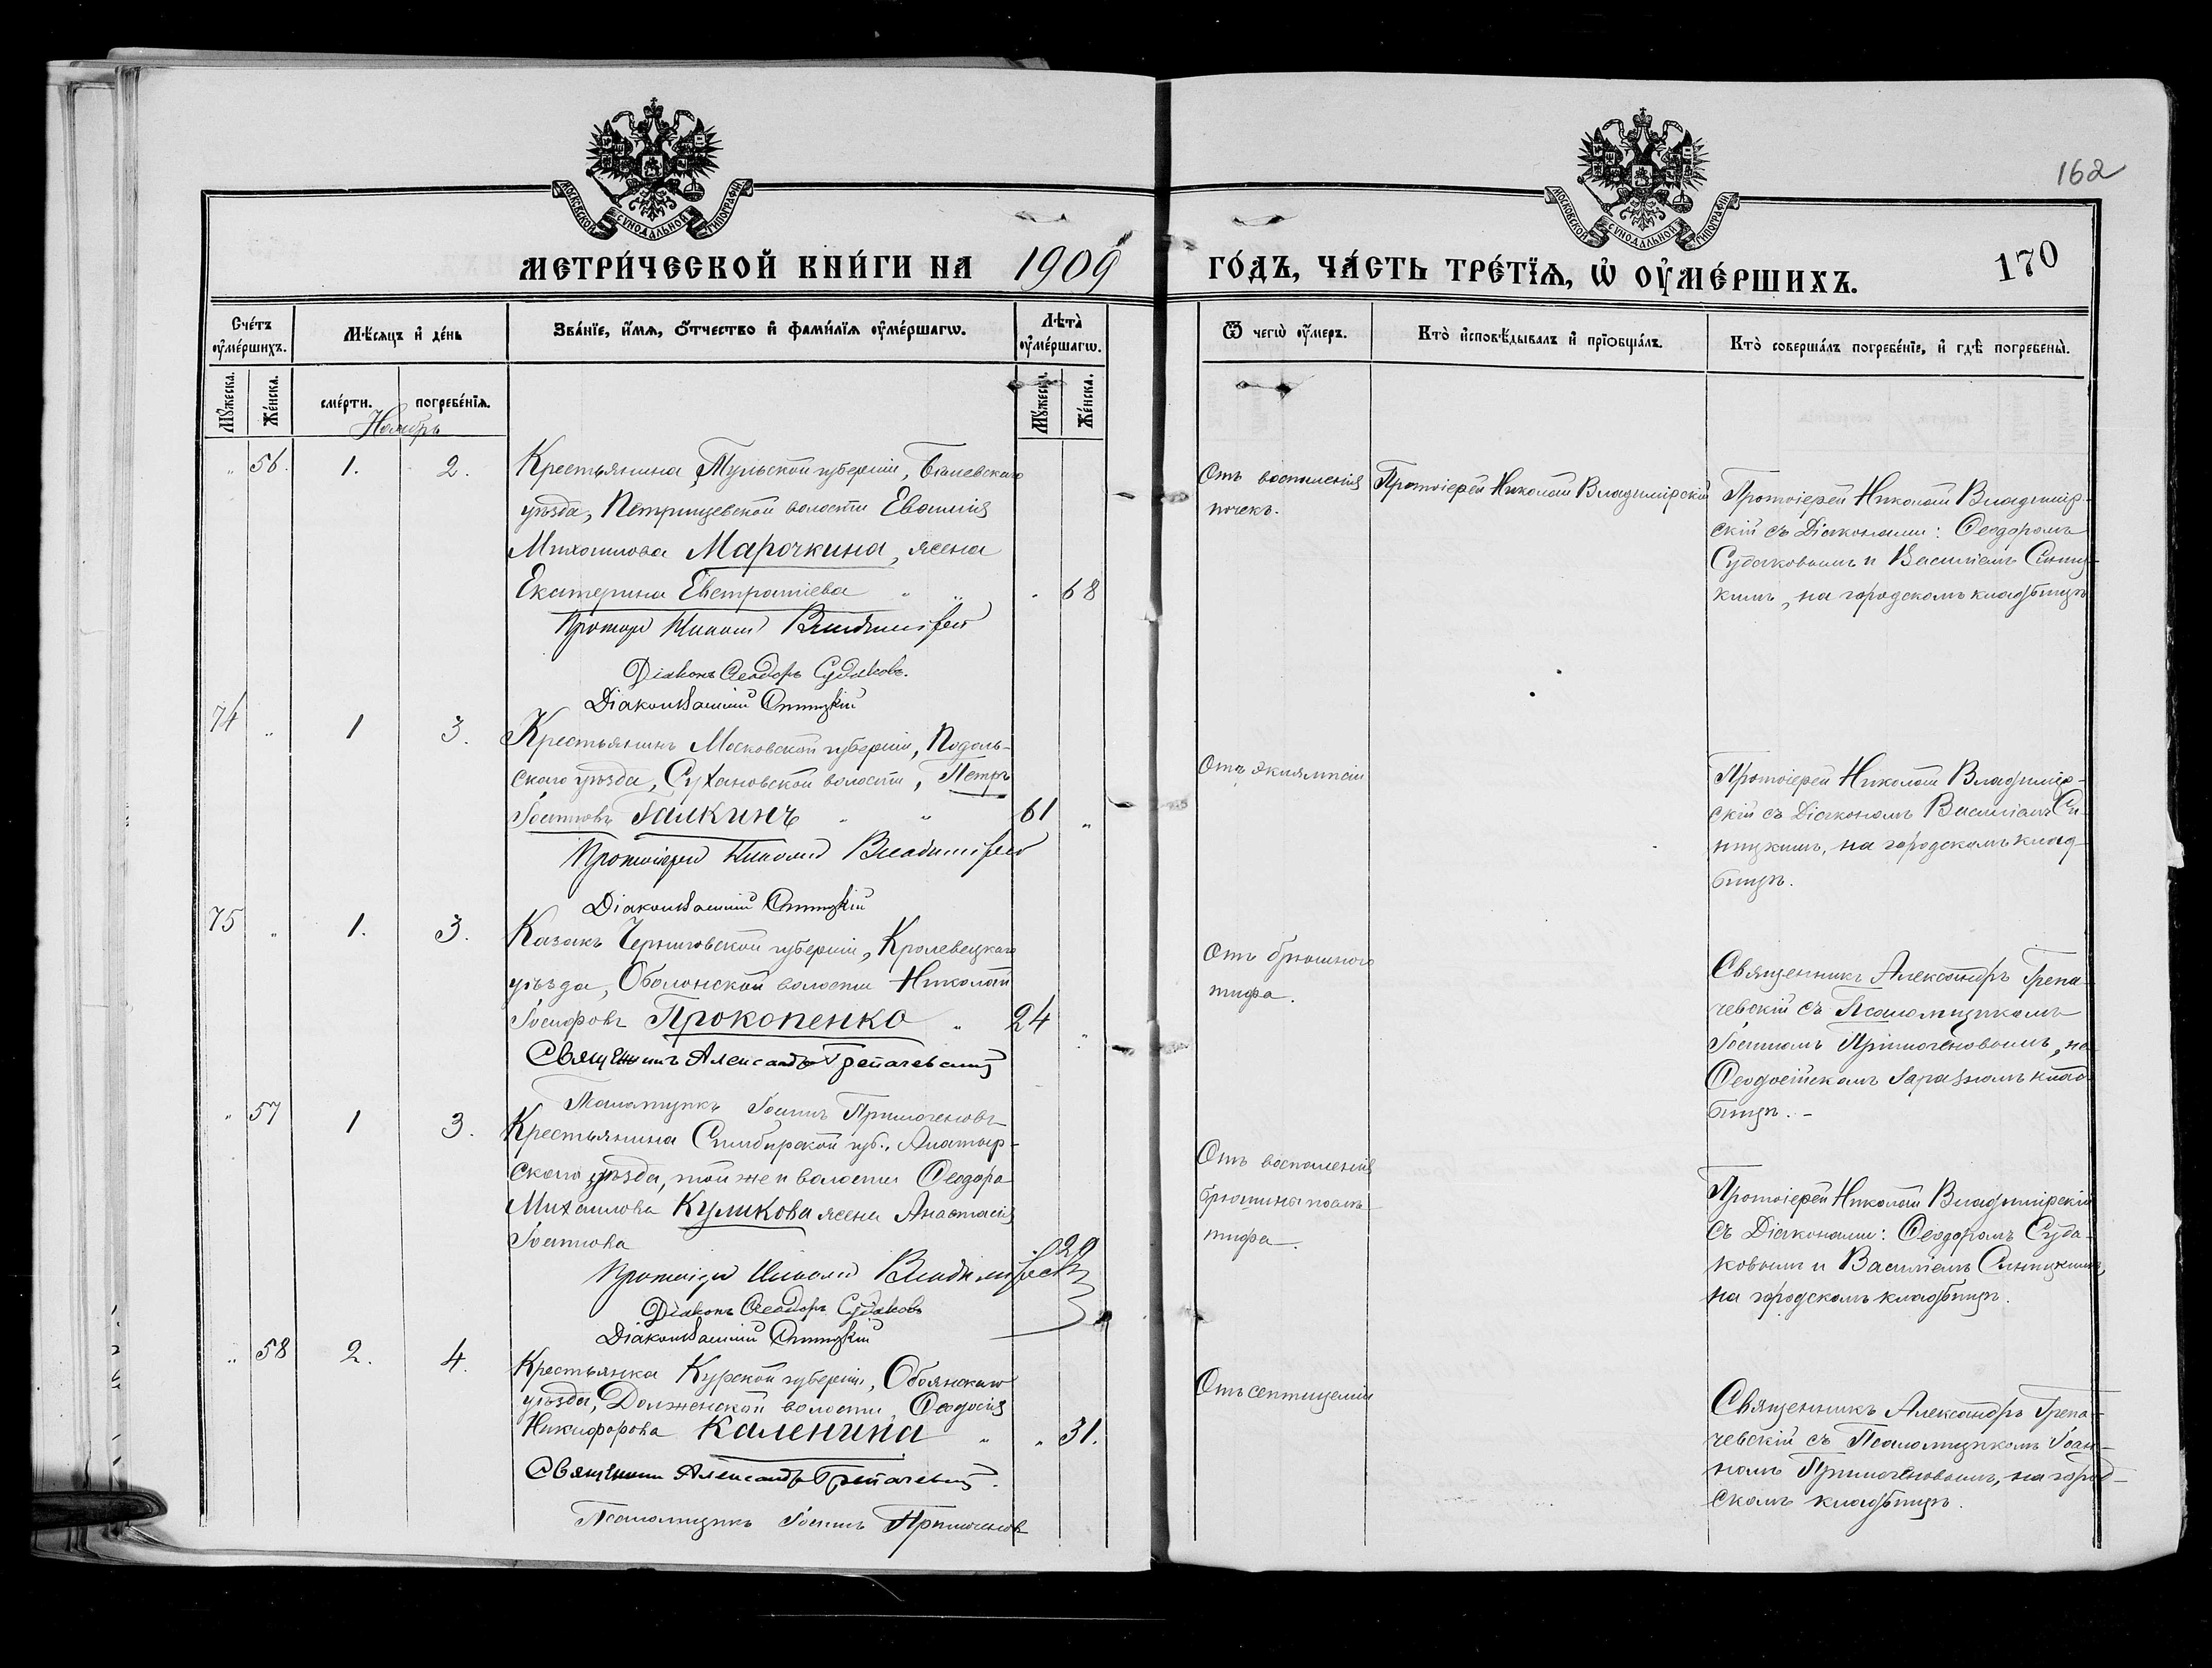 162
170
МОСКОВСКОЙ СУНОДАЛЬНОЙ ТИПОГРАФІИ
МОСКОВСКОЙ СУНОДАЛЬНОЙ ТИПОГРАФІИ
МЕТРИ́ЧЕСКОЙ КНИ́ГИ НА 1909 ГО́ДЪ, ЧА́СТЬ ТРЕ́ТЇѦ, Ѡ ОУ҆МЕ́РШИХЪ.
Сче́тъ оу҆ме́ршихъ.
Мѣ́сяцъ и҆ де́нь
Зва́нїе, и҆́мѧ, ѻ҆́тчество и҆ фами́лїѧ оу҆ме́ршагѡ.
Лѣ́та оу҆ме́ршагѡ.
Ѿ чегѡ̀ оу҆́меръ.
Кто̀ и҆сповѣ́дывалъ и҆ прїѡбща́лъ.
Кто̀ соверша́лъ погребе́нїе, и҆ гдѣ̀ погребены̀.
Мꙋ́жеска.
Же́нска.
сме́рти.
погребе́нїѧ.
Мꙋ́жеска.
Же́нска.
Ноябрь
„ 56. 1. 2.
Крестьянина Тульской губерніи, Бѣлевскаго
уѣзда, Петрищевской волости Евѳимія
Михаилова Марочкина, жена
Екатерина Евстратіева „ „ „ 68
Протоіер Николай Владимірскій
Діаконъ Ѳеодоръ Судаковъ.
Діаконъ Василій Синицкій
Отъ воспаленія
почекъ.
Протоіерей Николай Владимірскій
Протоіерей Николай Владимір-
скій съ Діаконами: Ѳеодоромъ
Судаковымъ и Василіемъ Синиц-
кимъ, на городскомъ кладбищѣ
74 „ 1 3.
Крестьянинъ Московской губерніи, Подоль-
скаго уѣзда, Сухановской волости, Петръ
Іоанновъ Галкинъ „ „ 61 „
Протоіерей Николай Владимірскій
Діаконъ Василій Синицкій
Отъ эклямпсіи
Протоіерей Николай Владимір-
скій съ Діакономъ Василіемъ Си-
ницкимъ, на городскомъ клад-
бищѣ.
75 „ 1. 3.
Казакъ Черниговской губерніи, Кролевецкаго
уѣзда, Оболонской волости Николай
Іосифовъ Прокопенко „ 24 „
Священникъ Александръ Грепачевскій
Псаломщикъ Іоаннъ Примоченовъ
Отъ брюшного
тифа.
Священникъ Александръ Грепа-
чевскій съ Псаломщикомъ
Іоанномъ Примоченовымъ, на
Ѳеодосійскомъ заразномъ клад-
бищѣ. –
„ 57 1 3.
Крестьянина Симбирской губ., Алатыр-
скаго уѣзда, той же и волости Ѳеодора
Михаилова Куликова жена Анастасія
Іоаннова 29
Протоіерей Николай Владимірскій
Діаконъ Ѳеодоръ Судаковъ
Діаконъ Василій Синицкій
Отъ воспаленія
брюшина послѣ
тифа.
Протоіерей Николай Владимірскій
съ Діаконами: Ѳеодоромъ Суда-
ковымъ и Василіемъ Синицкимъ,
на городскомъ кладбищѣ.
„ 58 2. 4.
Крестьянка Курской губерніи, Обоянскаго
уѣзда, Долженской волости, Ѳеодосія
Никифорова Каленина „ „ 31.
Священникъ Александръ Грепачевскій.
Псаломщикъ Іоаннъ Примоченовъ
Отъ септицеміи
Священникъ Александръ Грепа-
чевскій съ Псаломщикомъ Іоан-
номъ Примоченовымъ, на город-
скомъ кладбищѣ.